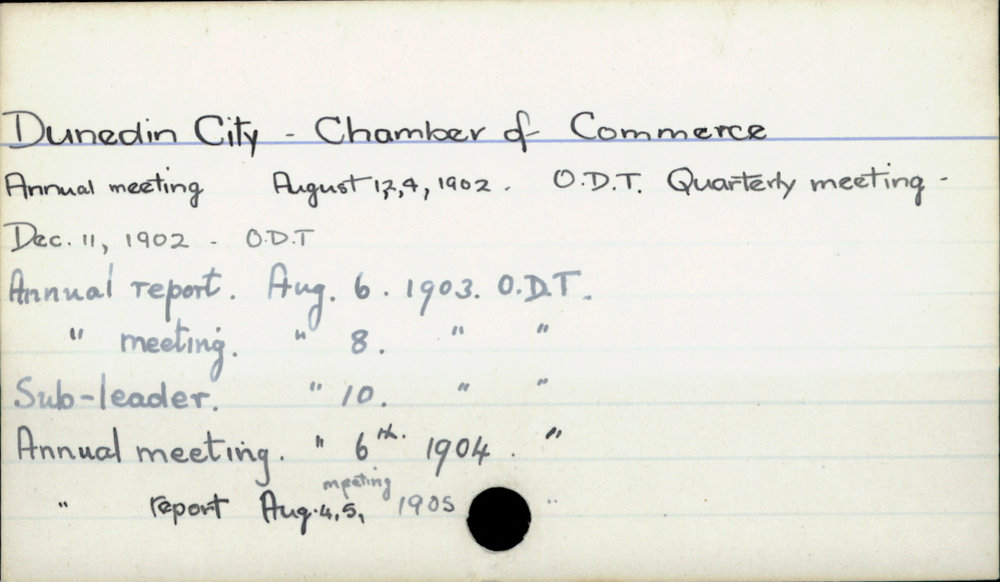 Dunedin City - Chamber of Commerce
Annual meeting August 1,2,4, 1902. O.D.T. Quarterly meeting -
Dec. 11, 1902 - O.D.T
Annual report. Aug. 6. 1903. O.D.T.
" meeting. " 8. " "
Sub-leader. " 10. " "
Annual meeting. " 6th. 1904. "
meeting
" report Aug. 4, 5, 1905 "